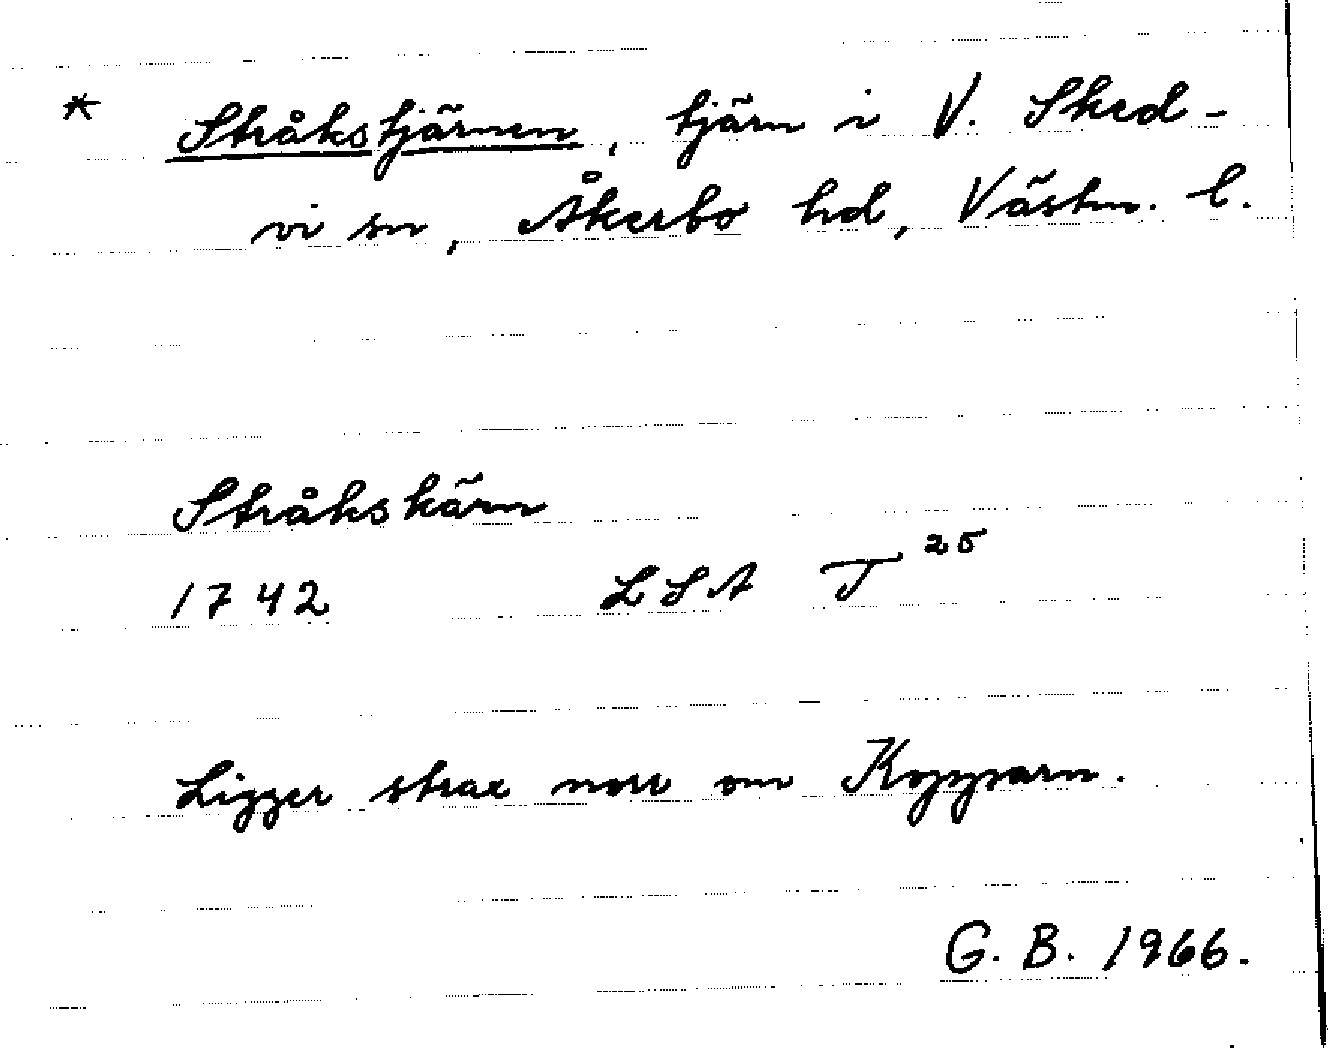 * Stråkstjärnen, tjärn i V. Sked-
vi sn, Åkerbo hd, Västm. l.
Stråkskärn
1742 LSA T 25
Ligger strax norr om Kopparn.
G. B. 1966.